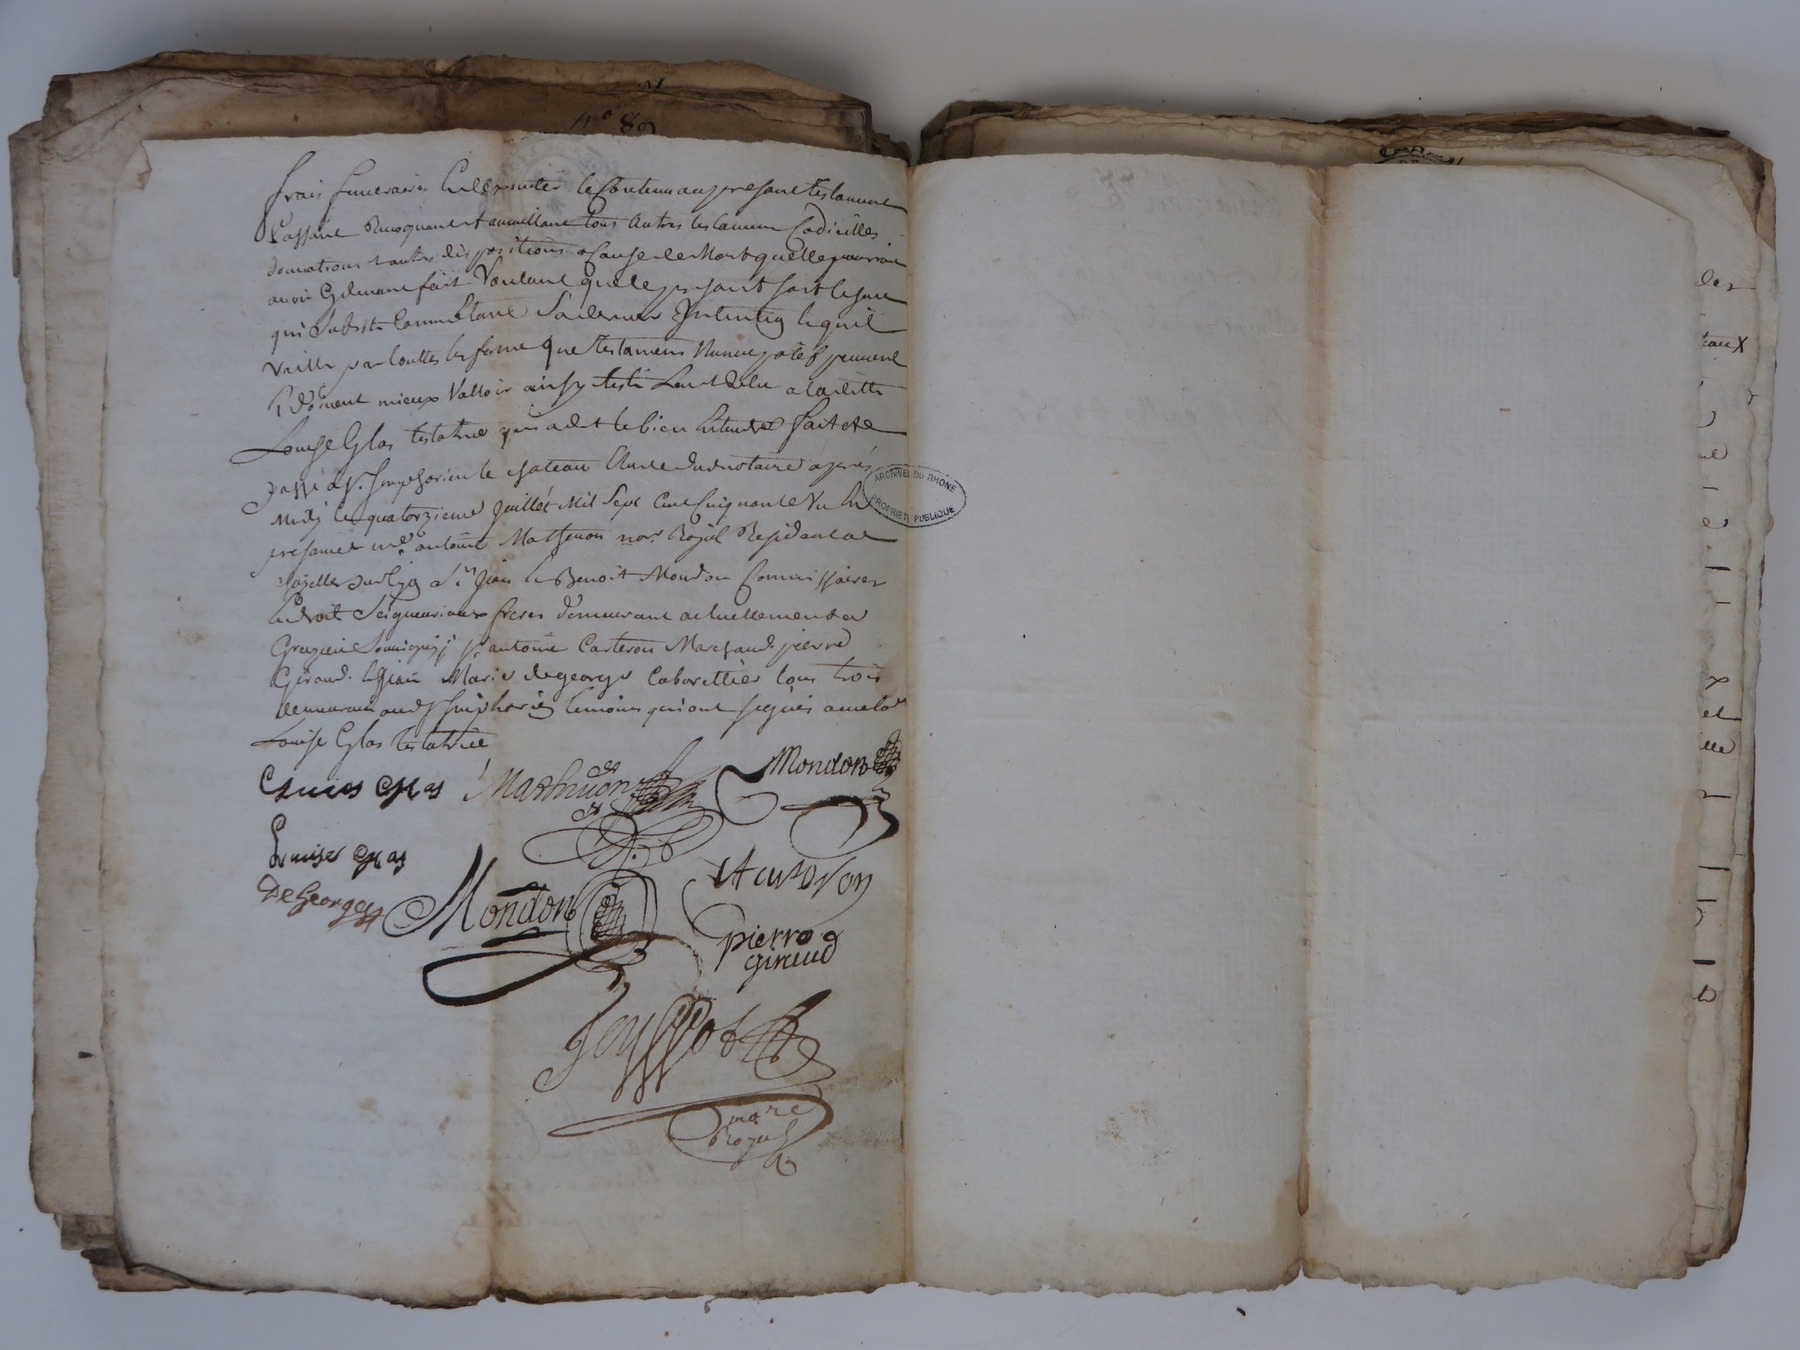 n° 89
frais funeraires et Executer le Contenu au present testament
Cassant Revoquant & annullant tous Autres testamens Codicilles
donations & autres dispositions a Cause de Mort quelle pourroit
avoir Cydevant fait Voulant que le present soit le seul
qui subsiste Comme Etant Sa derniere Intention lequel
Vaille par touttes les forme que testamens Nuncupatifs peuvent
& doivent mieux Valloir ainsy testé Leu & Relu a laditte
Louise Glas testatrice qui a dit le bien Entendre fait et
passé a St. Simphorien le chateau Etude dud notaire après
Midy le quatorzieme Juillet Mil Sept Cent Cinquante Un En
presance de me. antoine Mathevon nore. Royal Residant a
Srs Jean & Benoit Mondon Commissaires
En droit Seigneuriaux freres demeurant actuellement a
Grezieu Sr. antoine Carteron Marchand. pierre
Giraud. & Jean Marie degeorge Cabarettiers tous trois
demeurant aud St Simphorien temoins qui ont signés avec lad
Louise Glas testatrice
Louise glas
Mathevon
Mondon
Louise glas
De George
Mondon
A carteron
pierre
giraud
nore
Royal
ARCHIVES DU RHONE
PROPRIETE PUBLIQUE
der
eaux